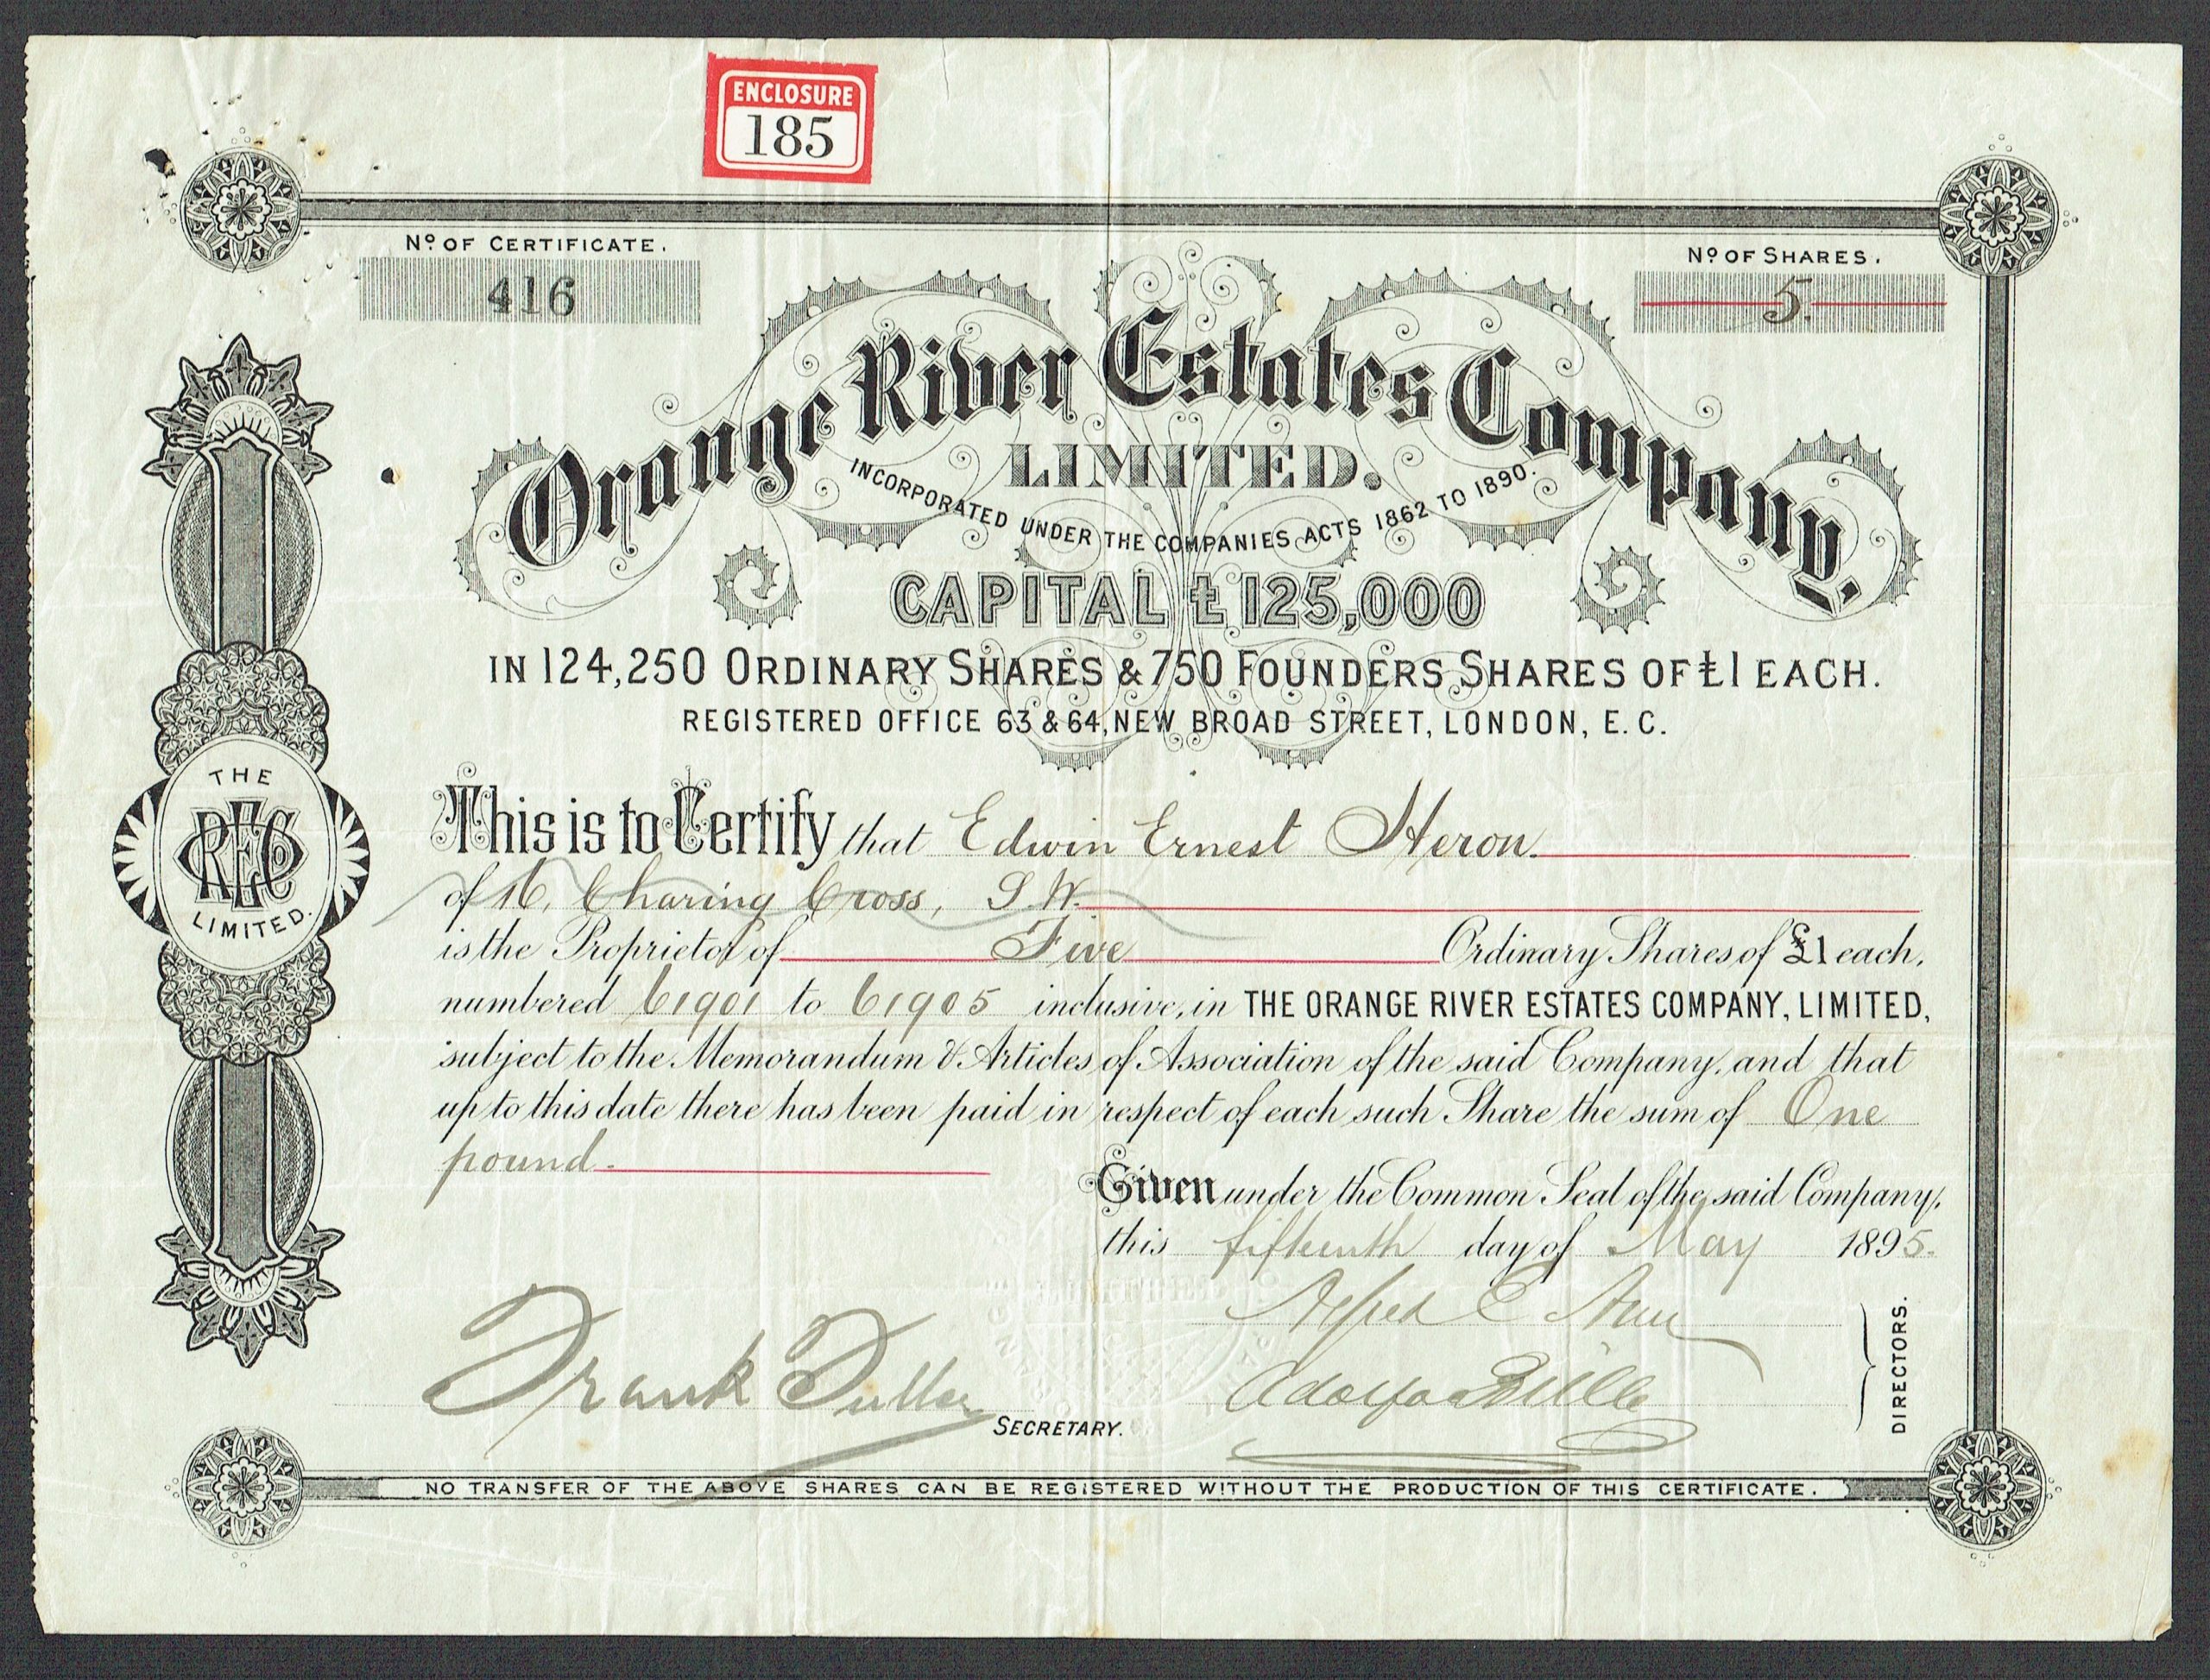 ENCLOSURE
185
No. OF CERTIFICATE.
416
No. OF SHARES.
5.
Orange River Estates Company,
LIMITED.
INCORPORATED UNDER THE COMPANIES ACTS 1862 TO 1890.
CAPITAL £125,000
IN 124,250 ORDINARY SHARES & 750 FOUNDERS SHARES OF £1 EACH.
REGISTERED OFFICE 63 & 64, NEW BROAD STREET, LONDON, E.C.
THE
REC
LIMITED.
This is to Certify that Edwin Ernest Heron.
of 16, Charing Cross, S.W.
is the Proprietor of Five Ordinary Shares of £1 each,
numbered 61901 to 61905 inclusive, in THE ORANGE RIVER ESTATES COMPANY, LIMITED,
subject to the Memorandum & Articles of Association of the said Company, and that
up to this date there has been paid in respect of each such Share the sum of One
pound.
Given under the Common Seal of the said Company,
this fifteenth day of May 1895.
Alfred E
Frank Fuller
SECRETARY.
DIRECTORS.
NO TRANSFER OF THE ABOVE SHARES CAN BE REGISTERED WITHOUT THE PRODUCTION OF THIS CERTIFICATE.